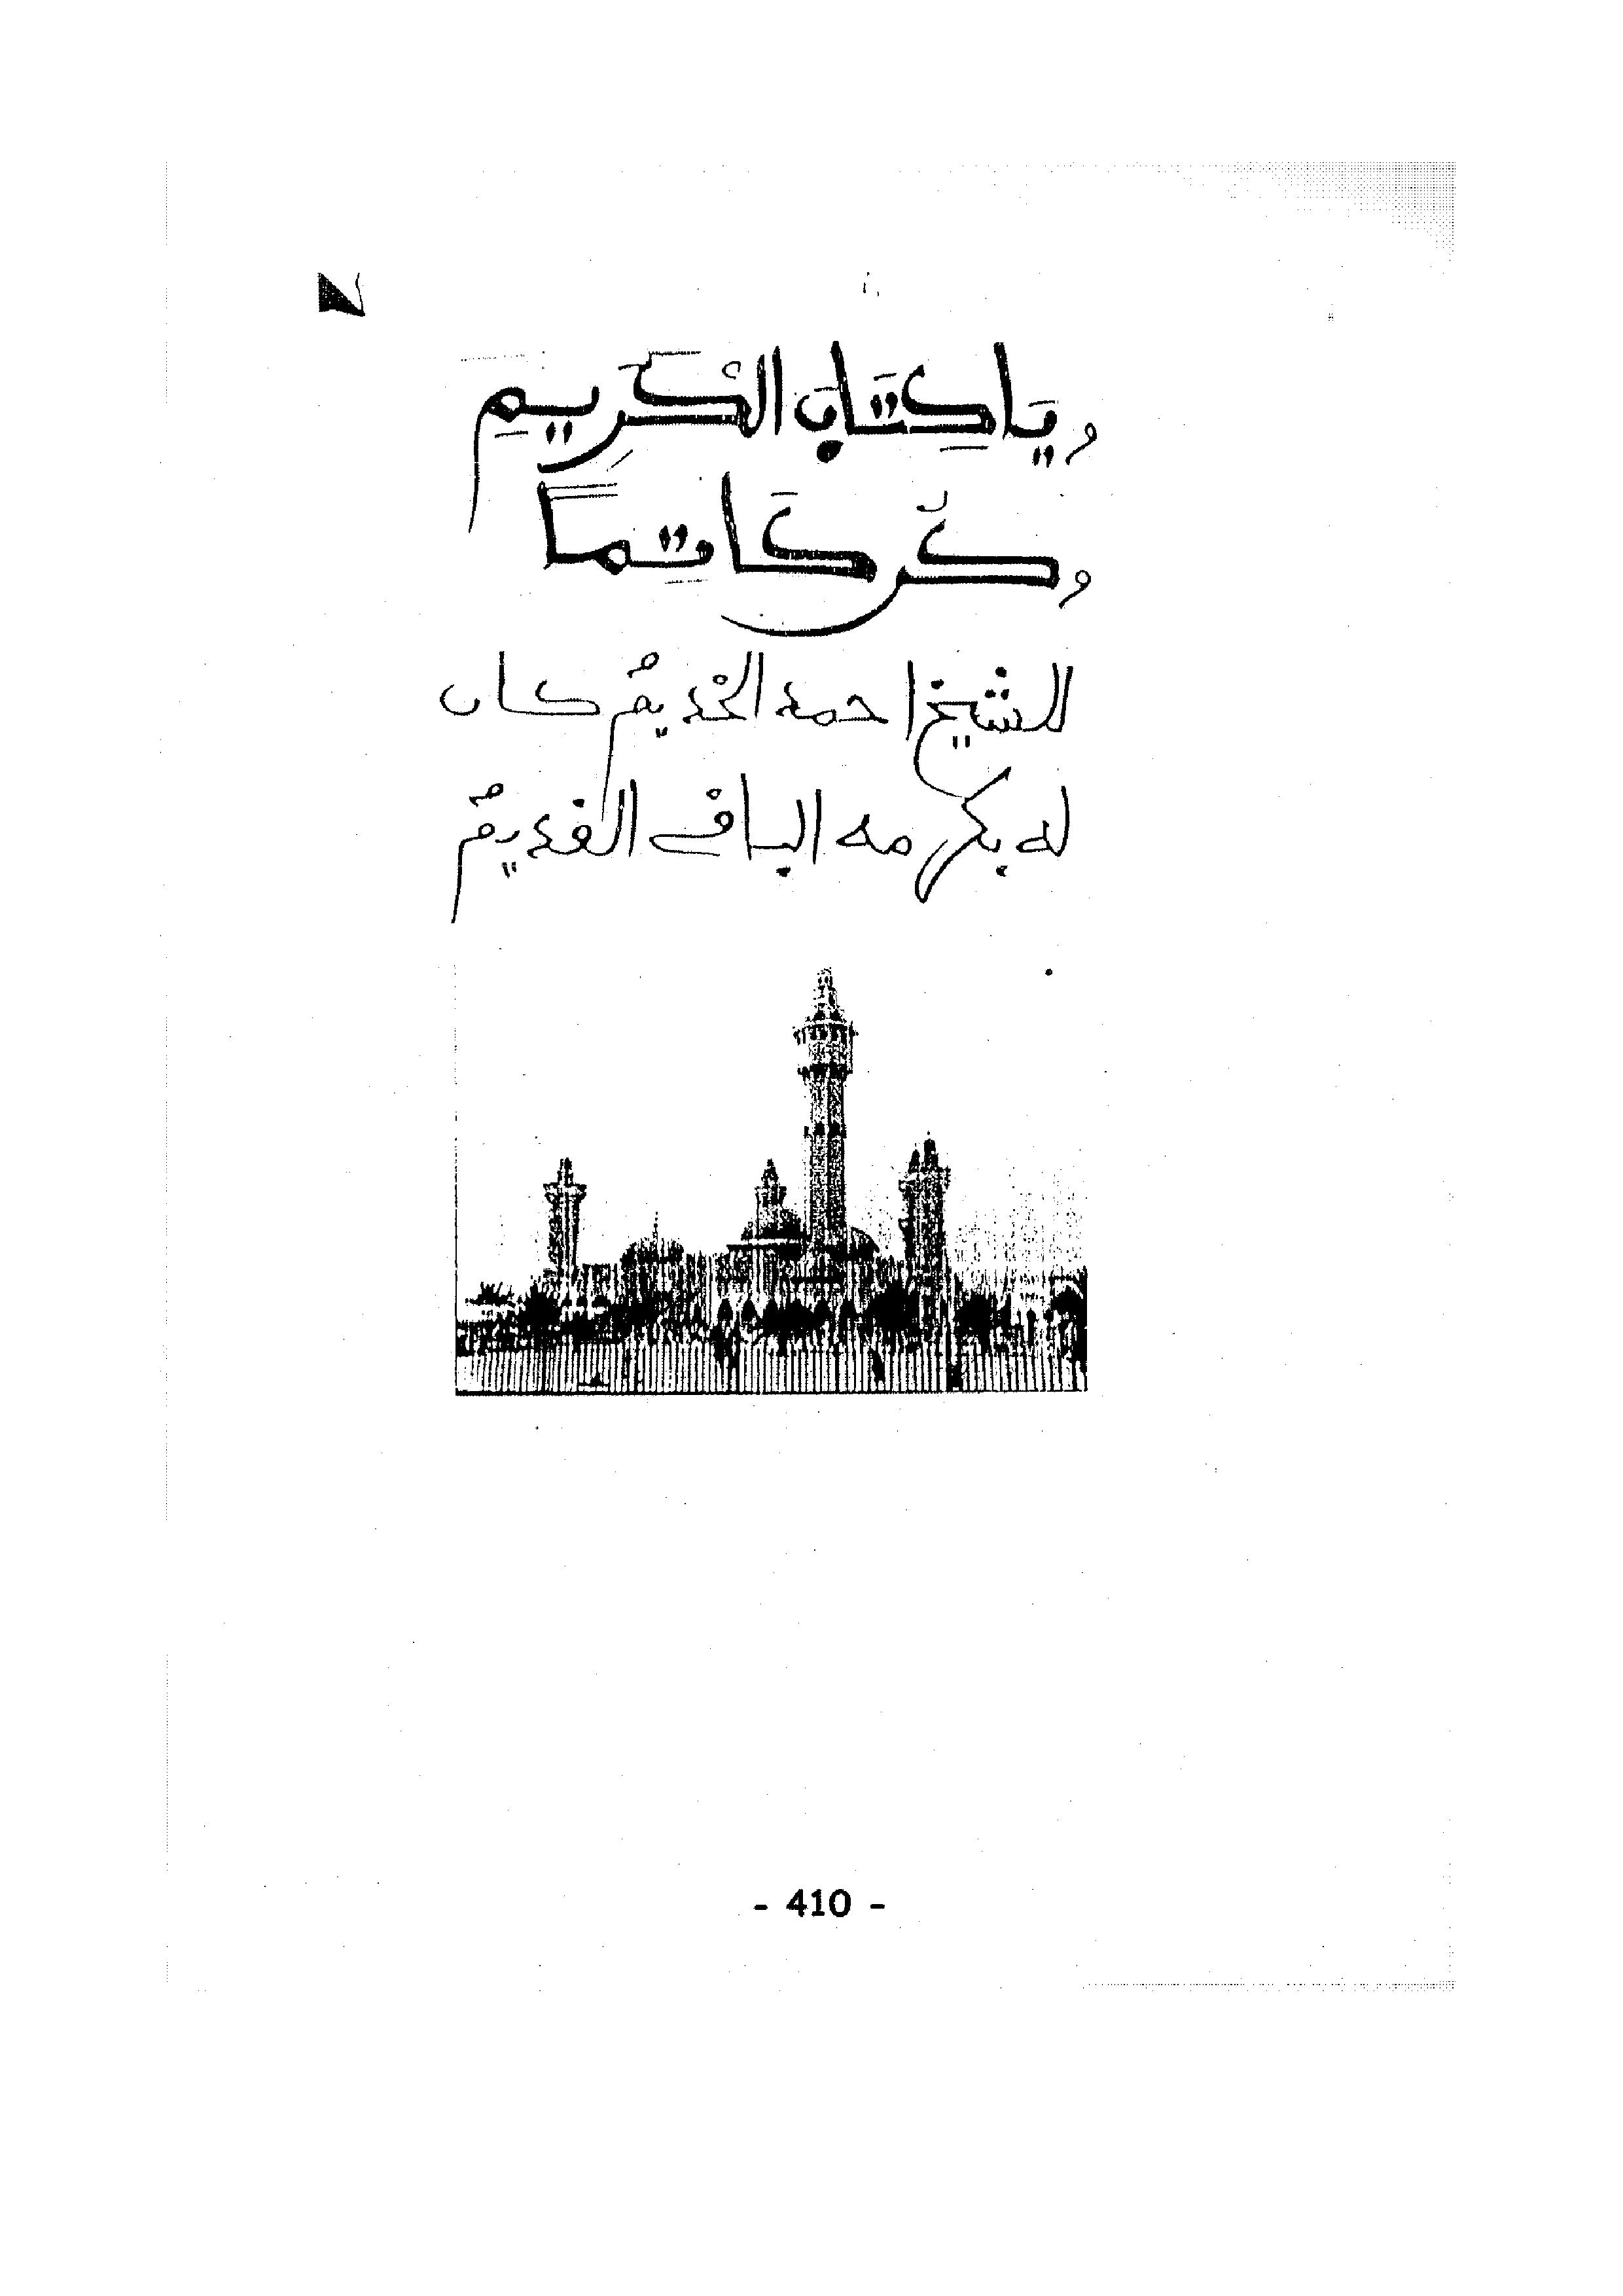 يَا كِتَابَ الْكَرِيمِ
كُن كَاتِمًا
للشيخ احمد الخْديمُ كان
له بكرمه الباقْى القديمُ
- 410 -